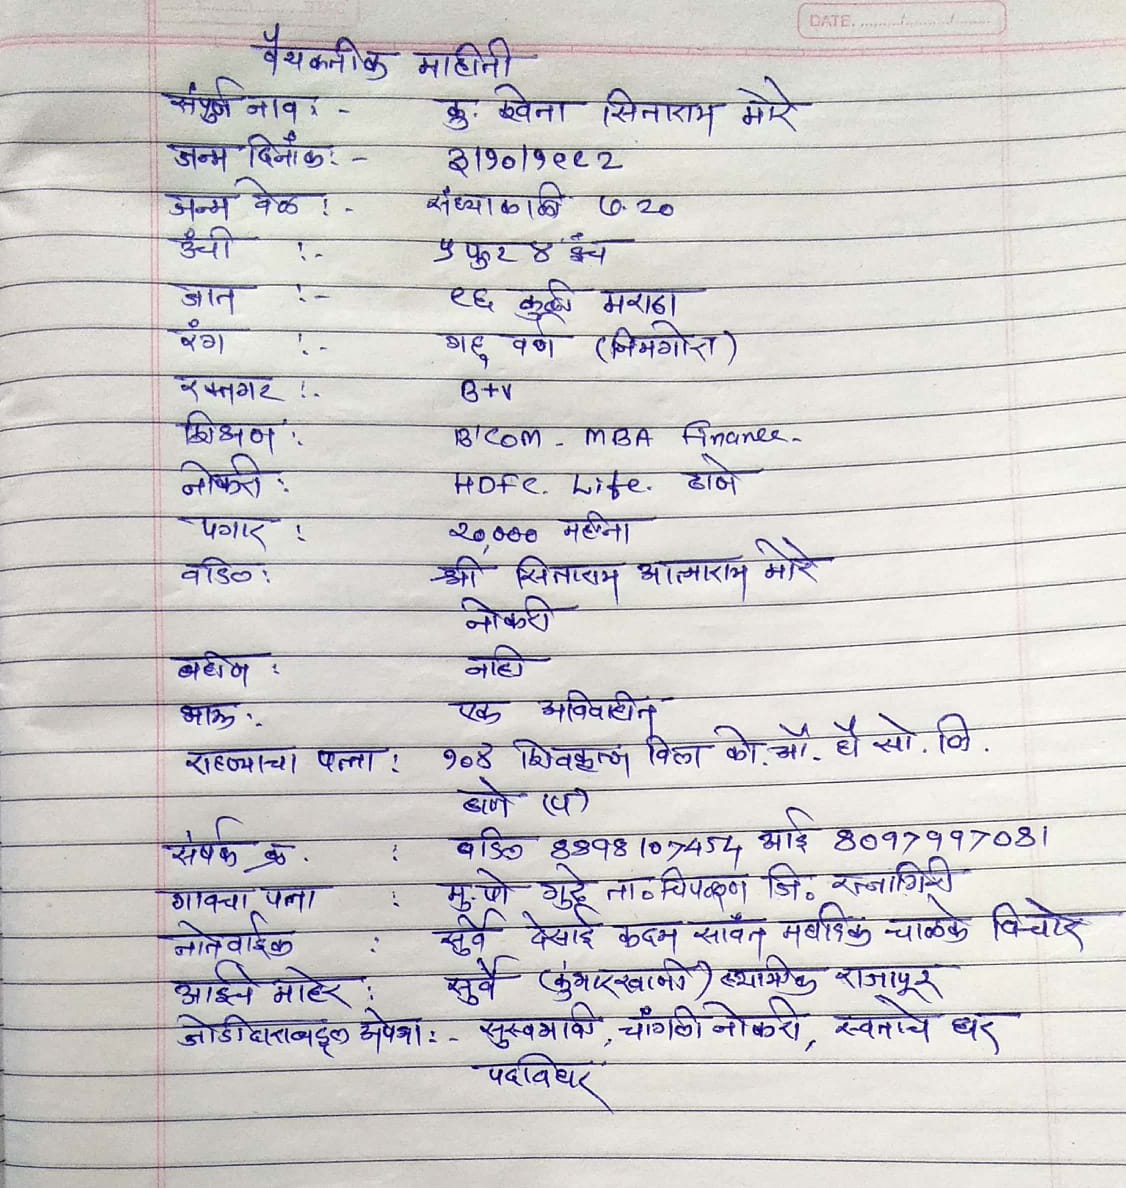 DATE.
वैयक्तीक माहीती
संपुर्ण नाव : - कु. श्वेता सिताराम मोरे
जन्म दिनाँक : - ३/१०/१९९२
जन्म वेळ : - संध्याकाळी ७.२०
उंची : - ५ फुट ४ इंच
जात : - ९६ कुळी मराठा
रंग : - गहू वर्ण (निमगोरा)
रक्तगट : - B+v
शिक्षण : B'com - MBA Finance -
नोकरी : HDFC. Life. ठाणे
पगार : २०,००० महीना
वडिल : श्री सिताराम आत्माराम मोरे
नोकरी
बहीण : नाही
भाऊ : - एक अविवाहीत
राहण्याचा पत्ता : १०४ शिवकृत्न विला को. ऑ. हौ सो. लि.
ठाणे (प)
संर्पक क्र. : वडिल 8898107454 आई 8097997081
गावचा पत्ता : मु. पो गुढे ता. चिपळूण जि. रत्नागिरी
नातेवाईक : सुर्वे देसाई कदम सावंत महाडिक चाळके विचारे
आईचे माहेर : सुर्वे (कुंभारखाणी) स्थायीक राजापूर
जोडीदाराबद्दल अपेक्षा : - सुस्वभावी, चांगली नोकरी, स्वताचे घर
पदविधर